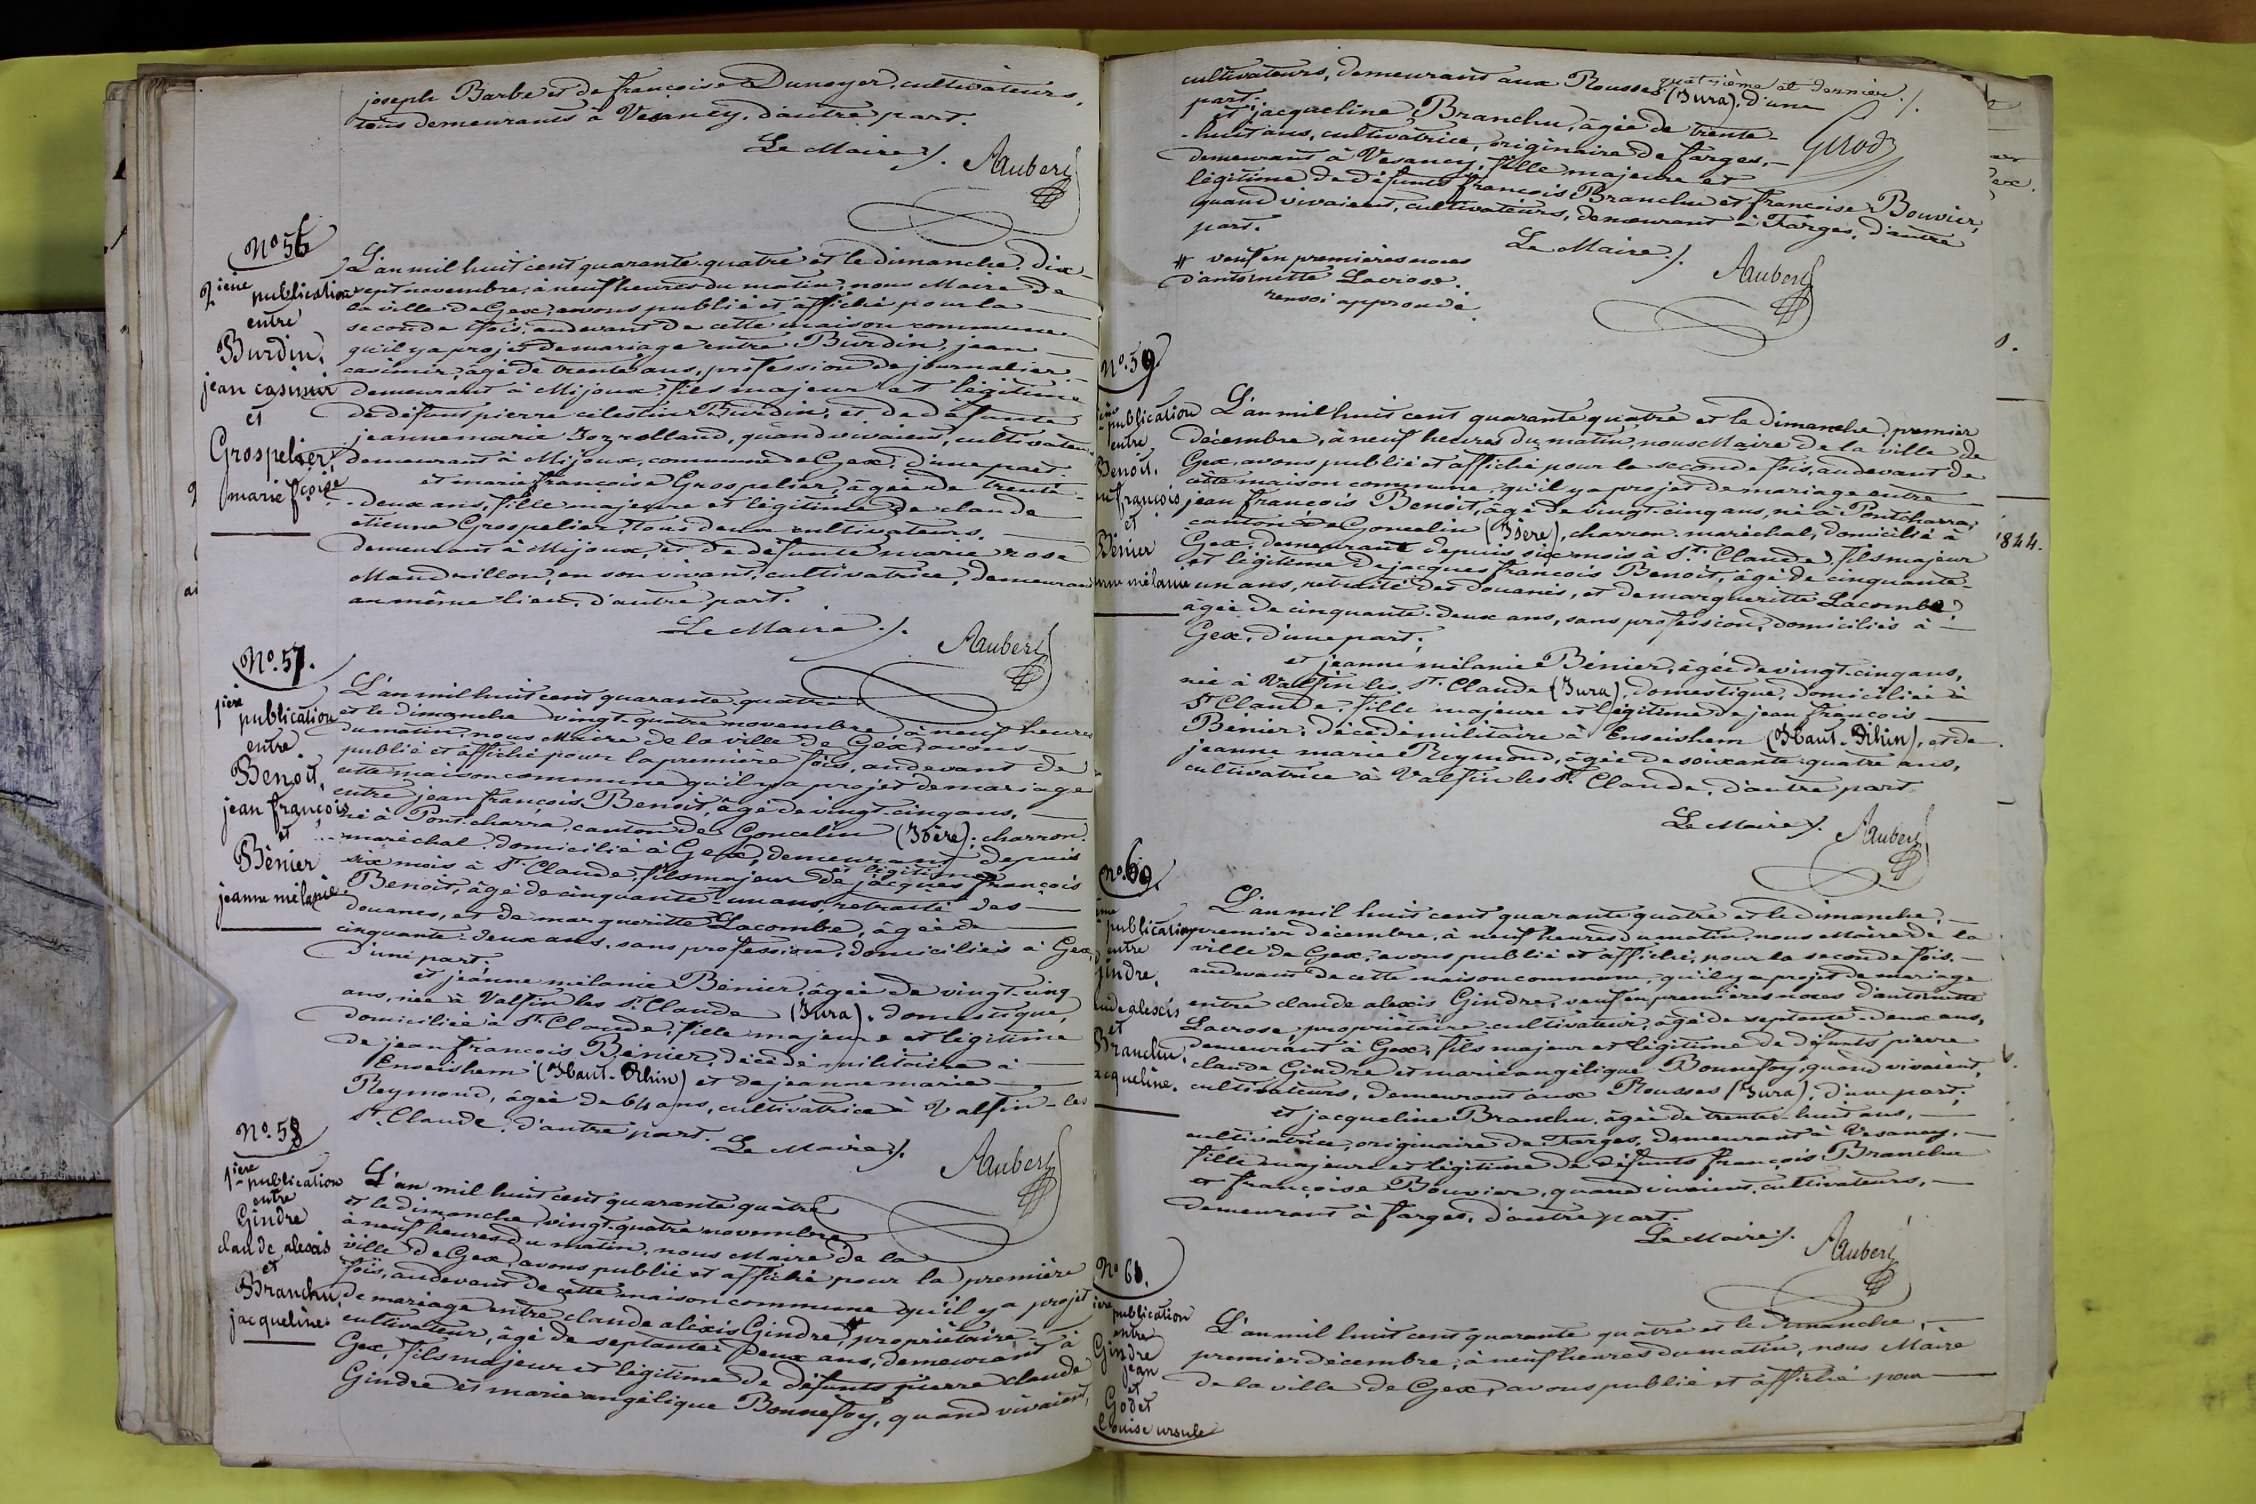 joseph Barbe et de françoise Dunoyer, cultivateurs,
tous demeurants à Vesancy, d'autre part.
Le Maire ./.
Aubert
N.º 56
2.ième publication
entre
Burdin,
jean casimir
et
Grospelier,
marie f.çoise
L'an mil huit cent quarante-quatre et le dimanche dix-
sept novembre, à neuf heures du matin, nous Maire de
la ville de Gex, avons publié et affiché pour la
seconde fois, audevant de cette maison commune
qu'il y a projet de mariage entre Burdin, jean
casimir, âgé de trente ans, profession de journalier
demeurant à Mijoux, fils majeur et légitime
de défunt pierre célestin Burdin, et de défunte
jeanne marie rolland, quand vivaient, cultivateurs
demeurant à Mijoux, commune de Gex, d'une part.
et marie françoise Grospelier, âgée de trente-
deux ans, fille majeure et légitime de claude
étienne Grospelier, tous deux cultivateurs,
demeurant à Mijoux, et de défunte marie rose
Mandrillon, en son vivant, cultivatrice, demeurant
au même lieu, d'autre part.
Le Maire ./.
Aubert
N.º 57.
1.ière publication
entre
Benoit,
jean françois
et
Bénier
jeanne mélanie.
L'an mil huit cent quarante-quatre
et le dimanche vingt-quatre novembre, à neuf heures
du matin, nous Maire de la ville de Gex, avons
publié et affiché pour la première fois, audevant de
cette maison commune qu'il y a projet de mariage
entre jean françois Benoit, âgé de vingt-cinq ans,
né à Pont-charra, canton de Goncelin (Isère), charron-
maréchal, domicilié à Gex, demeurant depuis
six mois à S.t Claude, fils majeur et légitime de jacques françois
Benoit, âgé de cinquante-un ans, retraité des
douanes, et de margueritte Lacombe, âgée de
cinquante-deux ans, sans profession, domiciliés à Gex,
d'une part.
et jeanne mélanie Bénier, âgée de vingt-cinq
ans, née à Valfin les S.t Claude (Jura), domestique,
domiciliée à S.t Claude, fille majeure et légitime
de jean françois Bénier, décédé militaire à
Enseishem (Haut-Rhin) et de jeanne marie
Reymond, âgée de 64 ans, cultivatrice à Valfin-les
S.t Claude, d'autre part.
Le Maire ./.
Aubert
N.º 58
1.ière publication
entre
Gindre
claude alexis
et
Branchu,
jacqueline.
L'an mil huit cent quarante quatre
et le dimanche, vingt-quatre novembre
à neuf heures du matin, nous Maire de la
ville de Gex, avons publié et affiché pour la première
fois, audevant de cette maison commune qu'il y a projet
de mariage entre claude aléxis Gindre, # propriétaire-
cultivateur, âgé de septante-deux ans, demeurant à
Gex, fils majeur et légitime de défunts pierre claude
Gindre et marie angélique Bonnefoy, quand vivaient,
quatrième et dernier ./.
Girod
cultivateurs, demeurant aux Rousses (Jura), d'une
part;
et jacqueline Branchu, âgée de trente-
-huit ans, cultivatrice, originaire de farges,
demeurant à Vesancy, fille majeure et
légitime de défunts françois Branchu et françoise Bouvier,
quand vivaient, cultivateurs, demeurant à Farges, d'autre
part.
Le Maire ./.
Aubert
# veuf en premières noces
d'antoinette Lacrose.
renvoi approuvé.
N.º 59.
publication
entre
Benoit,
françois
et
Bénier
mélanie
L'an mil huit cent quarante quatre et le dimanche premier
décembre, à neuf heures du matin, nous Maire de la ville de
Gex, avons publié et affiché pour la seconde fois, audevant de
cette maison commune, qu'il y a projet de mariage entre
jean françois Benoit, âgé de vingt-cinq ans, né à Pontcharra,
canton de Goncelin (Isère), charron-maréchal, domicilié à
Gex, demeurant depuis six mois à S.t Claude, fils majeur
et légitime de jacques françois Benoit, âgé de cinquante-
un ans, retraité des douanes, et de margueritte Lacombe,
âgée de cinquante-deux ans, sans profession, domiciliés à
Gex, d'une part;
et jeanne mélanie Bénier, âgée de vingt-cinq ans,
née à Valfin les S.t Claude (Jura), domestique, domiciliée à
S.t Claude, fille majeure et légitime de jean françois
Bénier, décédé militaire à Enseishem (Haut-Rhin), et de
jeanne marie Reymond, âgée de soixante-quatre ans,
cultivatrice à Valfin les S.t Claude, d'autre part
Le Maire ./.
Aubert
N.º 60.
publication
entre
Gindre,
alexis
et
Branchu,
jacqueline.
L'an mil huit cent quarante quatre et le dimanche,
premier décembre, à neuf heures du matin, nous Maire de la
ville de Gex, avons publié et affiché, pour la seconde fois,
audevant de cette maison commune, qu'il y a projet de mariage
entre claude alexis Gindre, veuf en premières noces d'antoinette
Lacrose, propriétaire-cultivateur, âgé de septante-deux ans,
demeurant à Gex, fils majeur et légitime de défunts pierre
claude Gindre et marie angélique Bonnefoy, quand vivaient,
cultivateurs, demeurant aux Rousses (Jura), d'une part;
et jacqueline Branchu, âgée de trente-huit ans,
cultivatrice, originaire de Farges, demeurant à Vesancy,
fille majeure et légitime de défunts françois Branchu
et françoise Bouvier, quand vivaient, cultivateurs,
demeurant à farges, d'autre part.
Le Maire ./.
Aubert
N.º 61.
publication
entre
Gindre
jean
et
Godet
Louise ursule
L'an mil huit cent quarante quatre et le dimanche,
premier décembre, à neuf heures du matin, nous Maire
de la ville de Gex, avons publié et affiché pour
1844.